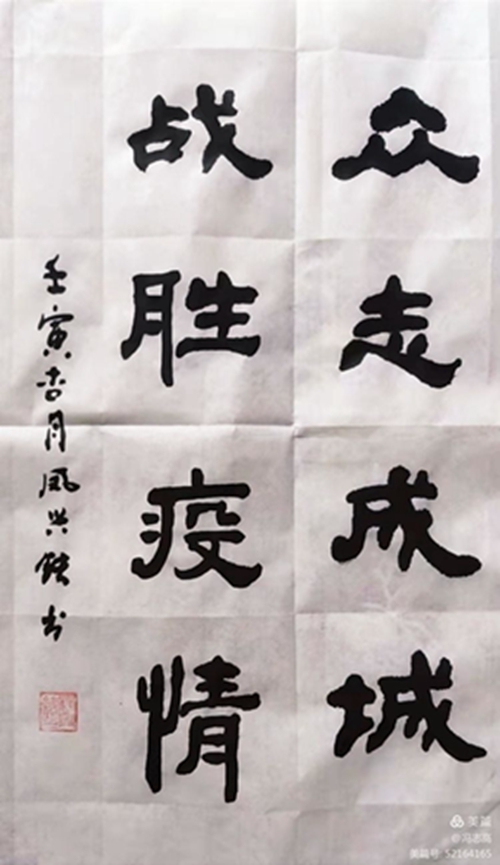 众志成城
战胜疫情
壬寅杏月风兴铁书
美篇
@冯志鸟
美篇号 52164165